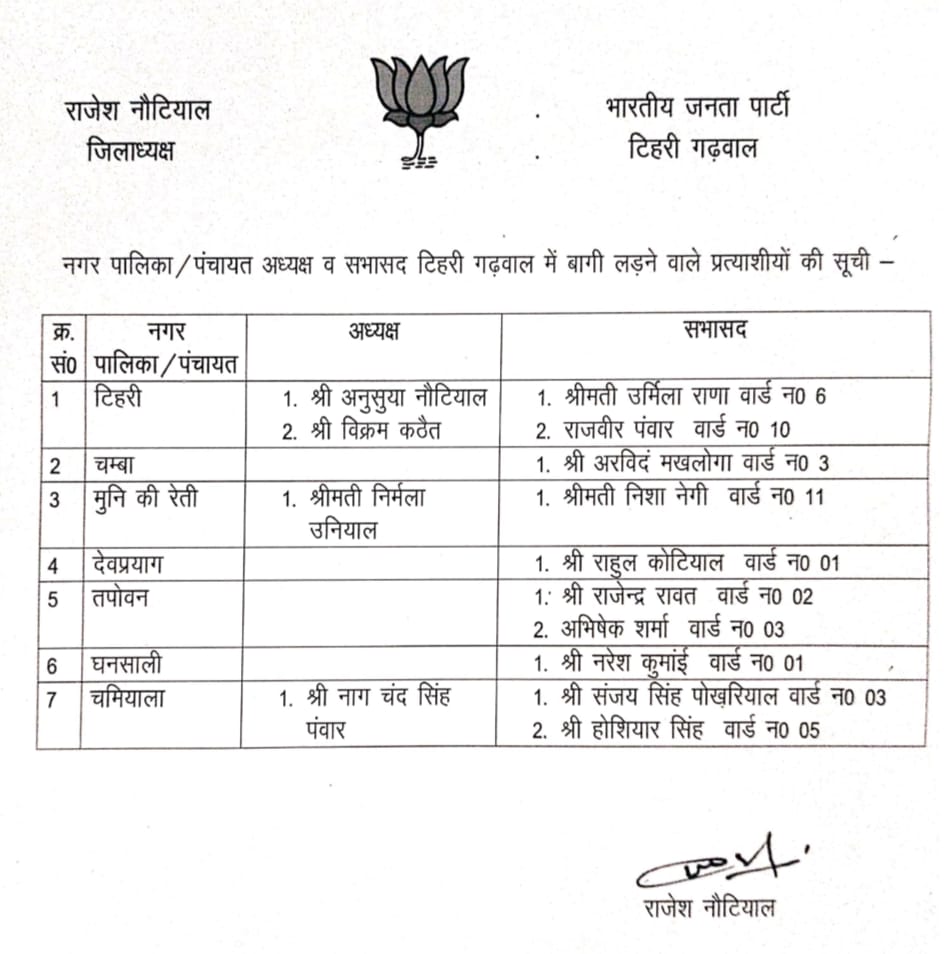 राजेश नौटियाल
जिलाध्यक्ष
भारतीय जनता पार्टी
टिहरी गढ़वाल
नगर पालिका/पंचायत अध्यक्ष व सभासद टिहरी गढ़वाल में बागी लड़ने वाले प्रत्याशीयों की सूची –
क्र. सं0 नगर पालिका/पंचायत अध्यक्ष सभासद
1 टिहरी 1. श्री अनुसुया नौटियाल 1. श्रीमती उर्मिला राणा वार्ड न0 6
2. श्री विक्रम कठैत 2. राजवीर पंवार वार्ड न0 10
2 चम्बा 1. श्री अरविदं मखलोगा वार्ड न0 3
3 मुनि की रेती 1. श्रीमती निर्मला 1. श्रीमती निशा नेगी वार्ड न0 11
उनियाल
4 देवप्रयाग 1. श्री राहुल कोटियाल वार्ड न0 01
5 तपोवन 1. श्री राजेन्द्र रावत वार्ड न0 02
2. अभिषेक शर्मा वार्ड न0 03
6 घनसाली 1. श्री नरेश कुमांई वार्ड न0 01
7 चमियाला 1. श्री नाग चंद सिंह 1. श्री संजय सिंह पोख़रियाल वार्ड न0 03
पंवार 2. श्री होशियार सिंह वार्ड न0 05
राजेश नौटियाल